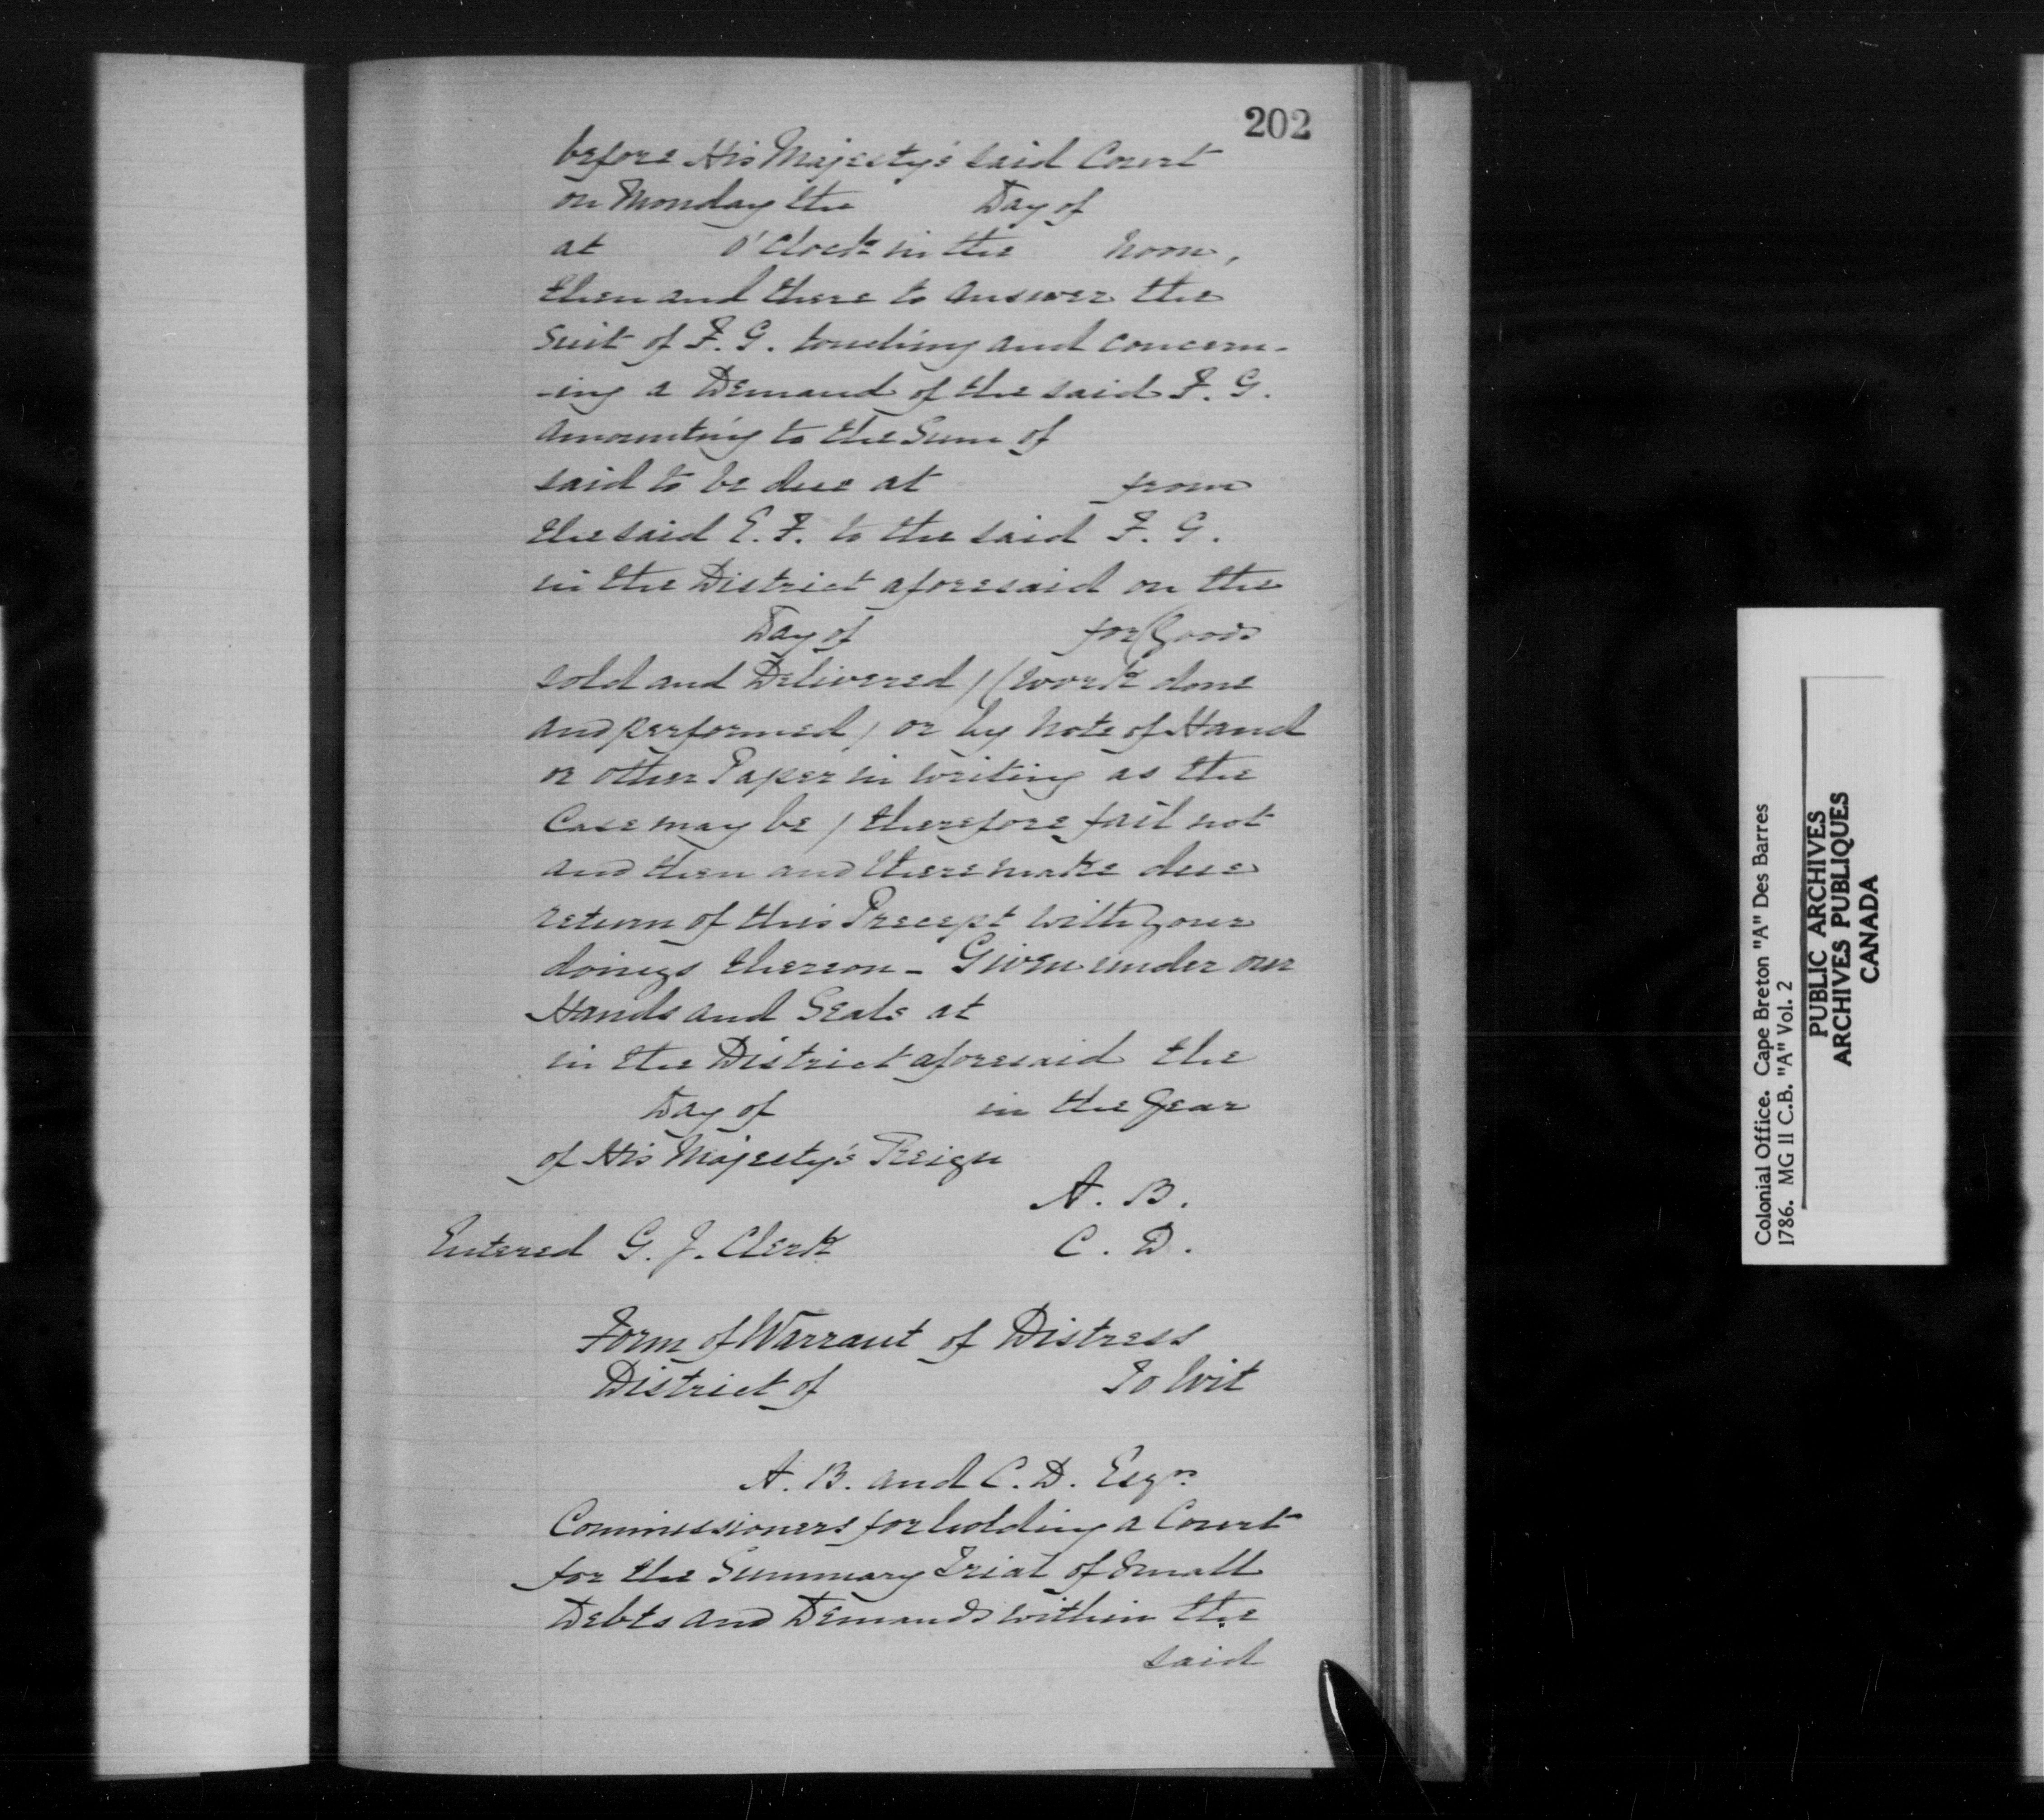 202
before His Majesty's said Court
on Monday the Day of
at O'Clock in the noon,
then and there to answer the
Suit of F. G. touching and concern-
-ing a Demand of the said F. G.
amounting to the Sum of
said to be due at from
the said E. F. to the said F. G.
in the District aforesaid on the
Day of for (Goods
sold and Delivered) (work done
and performed) or by Note of Hand
or other Paper in writing as the
Case may be) therefore fail not
and then and there make due
return of this Precept with your
doings thereon - Given under our
Hands and Seals at
in the District aforesaid the
Day of in the Year
of His Majesty's Reign
A. B.
Entered G. J. Clerk C. D.
Form of Warrant of Distress
District of To Wit
A. B. and C. D. Esqrs
Commissioners for holding a Court
for the Summary Trial of Small
Debts and Demands within the
said
Colonial Office. Cape Breton "A" Des Barres
1786. MG II C.B. "A" Vol. 2
PUBLIC ARCHIVES
ARCHIVES PUBLIQUES
CANADA